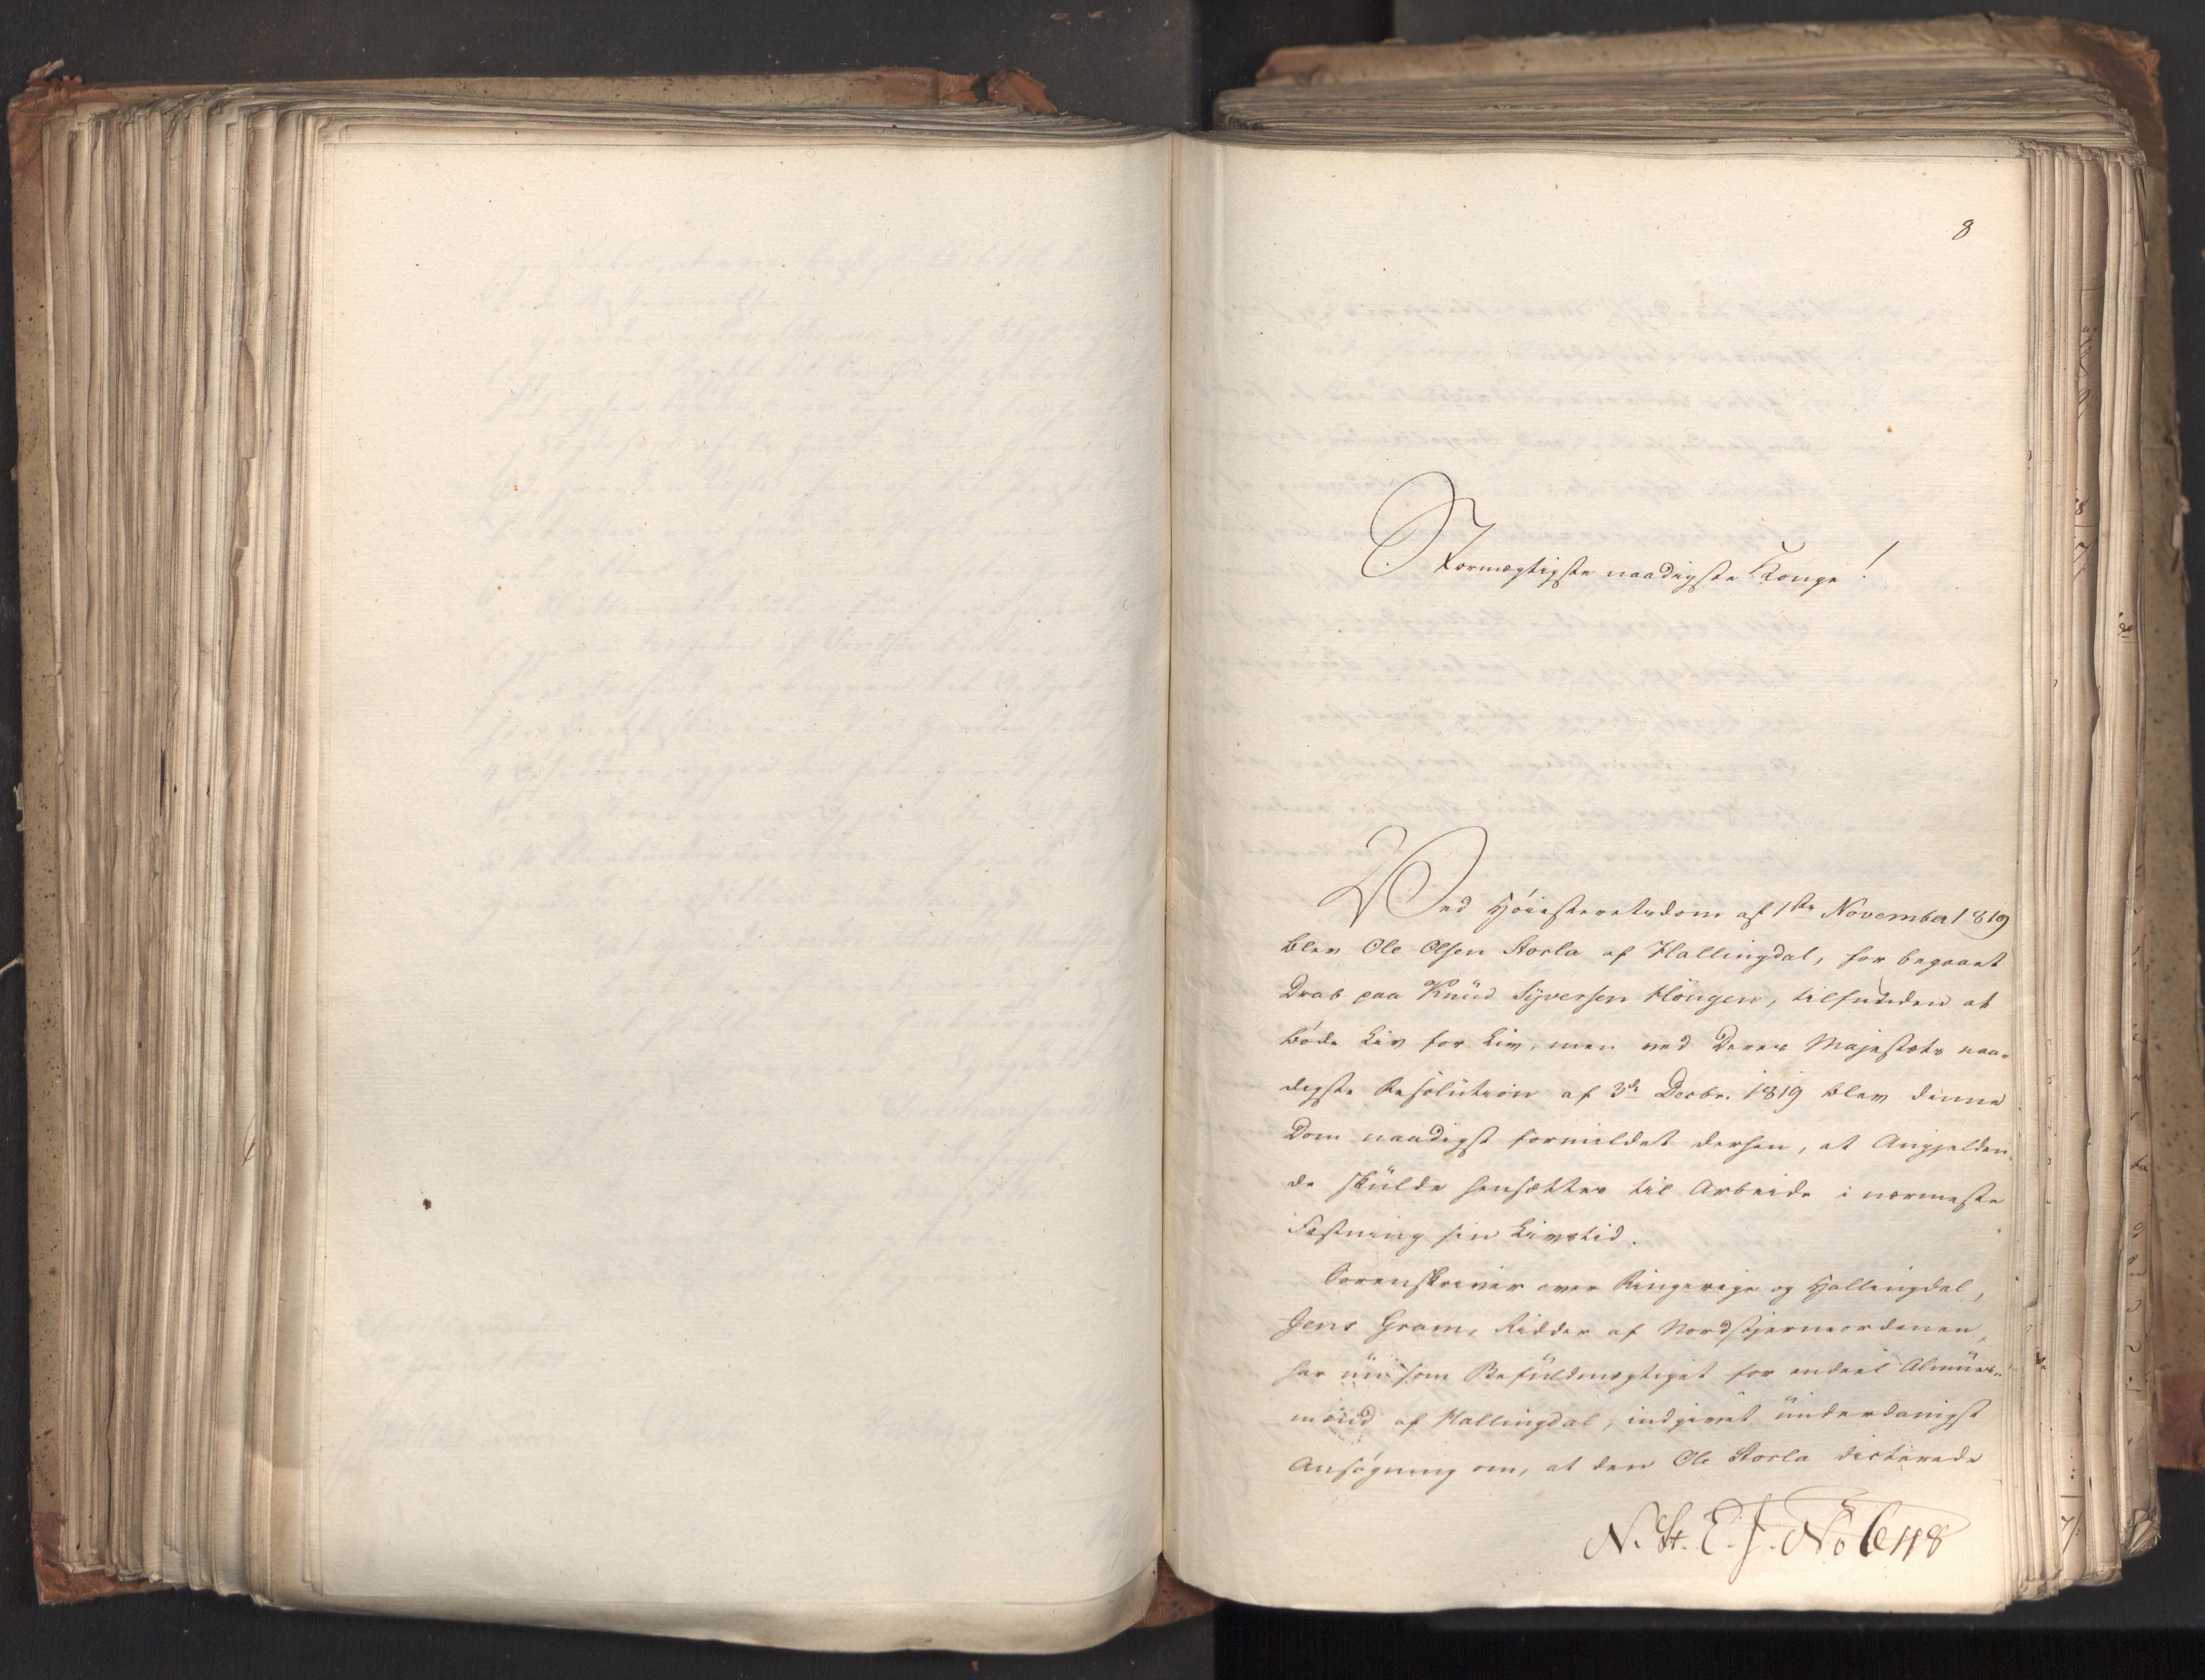 8
Stormægtigste naadigste Konge!
Ved Höiesteretsdom af 1ste November 1819
blev Ole Olsen Storla af Hallingdal, for begaaet
Drab paa Knud Syversen Höugen, tilfunden at
böde Liv for Liv, men ved Deres Majestæts naa-
digste Resolution af 3die Decbr. 1819 blev denne
Dom naadigst formildet derhen, at Angjelden-
de skulde hensættes til Arbeide i nærmeste
Fæstning sin Livstid.
Sorenskriver over Ringerige og Hallingdal,
Jens Gram, Ridder af Nordstjerneordenen,
har nu som Befuldmægtiget for endeel Almues-
mænd af Hallingdal, indgivet underdanigst
Ansögning om, at den Ole Storla dicterede
N. St. E. J. No 648